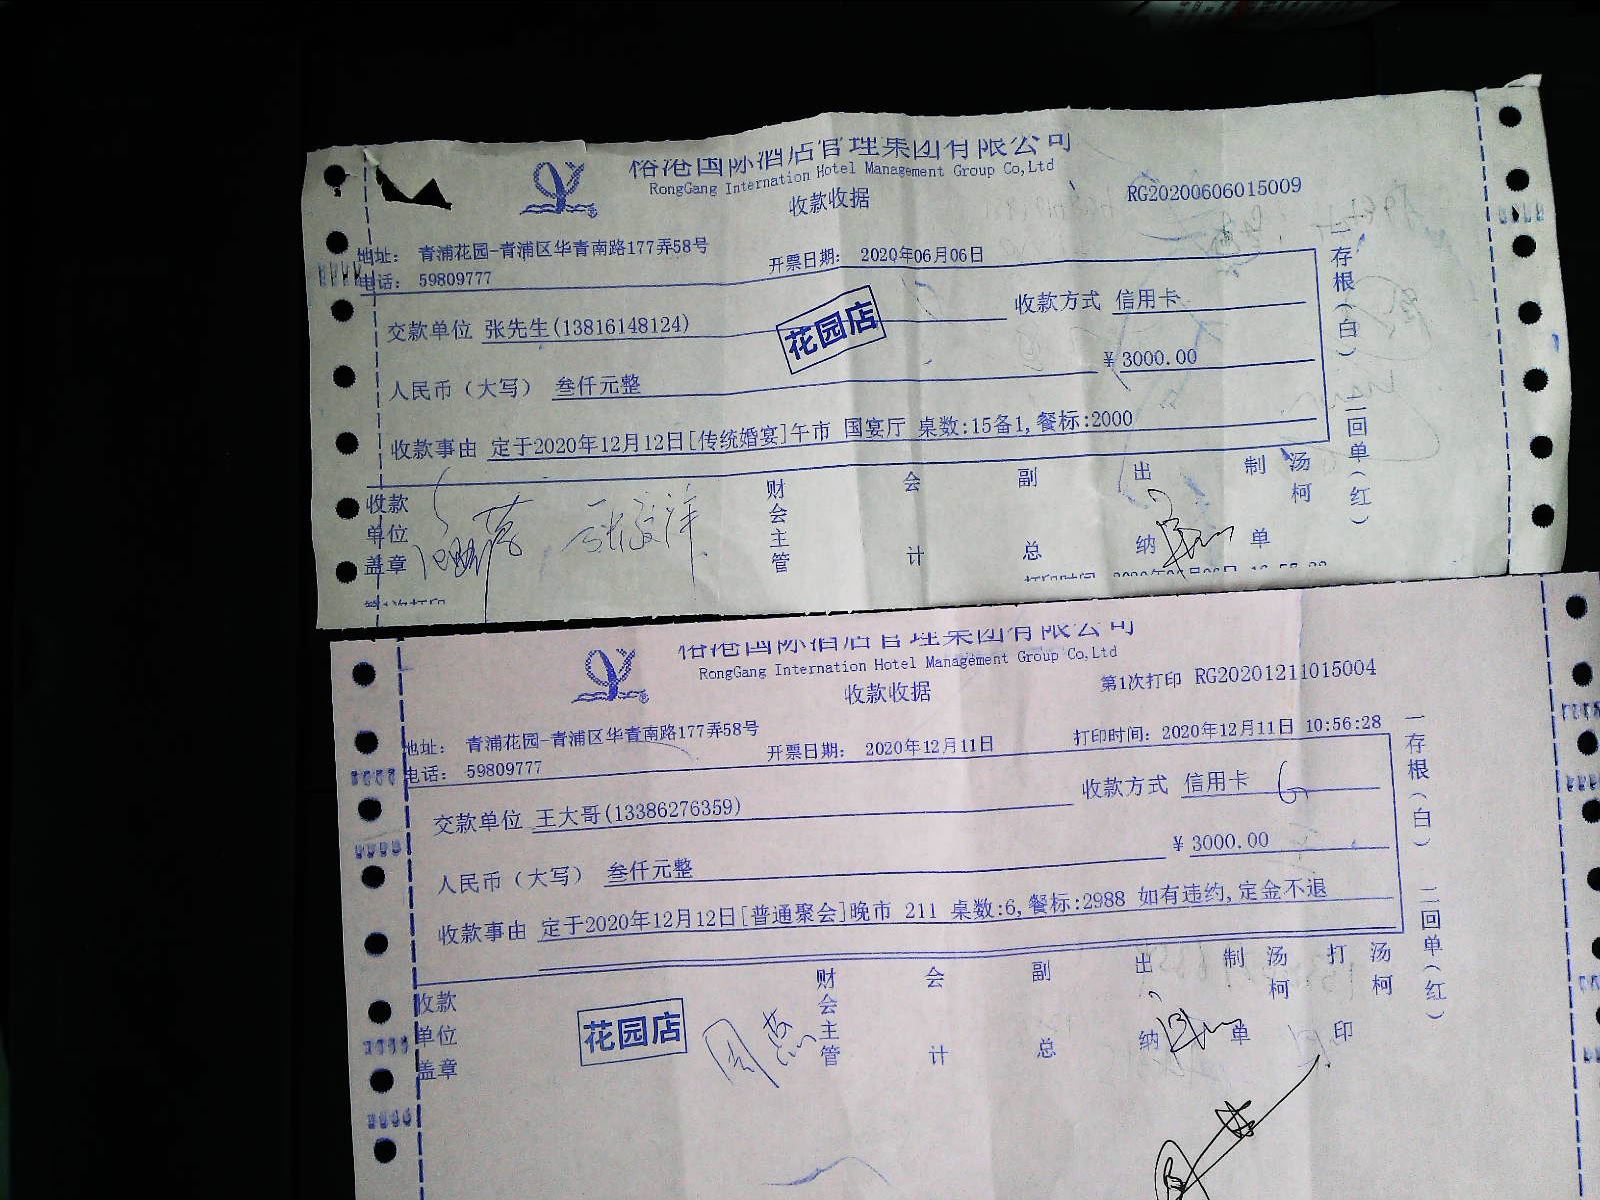 俗港国际酒店管理集团有限公司
RongGang Internation Hotel Management Group Co,Ltd
收款收据
RG20200606015009
地址： 青浦花园-青浦区华青南路177弄58号
电话： 59809777
开票日期： 2020年06月06日
交款单位 张先生(13816148124)
收款方式 信用卡
花园店
人民币（大写） 叁仟元整
¥ 3000.00
收款事由 定于2020年12月12日[传统婚宴]午市 国宴厅 桌数:15备1,餐标:2000
一存根（白） 二回单（红）
收款单位盖章
财会主管
会计
副总
出纳
制单
汤柯
俗港国际酒店管理集团有限公司
RongGang Internation Hotel Management Group Co,Ltd
收款收据
第1次打印 RG20201211015004
地址： 青浦花园-青浦区华青南路177弄58号
电话： 59809777
开票日期： 2020年12月11日
打印时间：2020年12月11日 10:56:28
交款单位 王大哥(13386276359)
收款方式 信用卡
人民币（大写） 叁仟元整
¥ 3000.00
收款事由 定于2020年12月12日[普通聚会]晚市 211 桌数:6,餐标:2988 如有违约,定金不退
一存根（白） 二回单（红）
收款单位盖章
花园店
财会主管
会计
副总
出纳
制单
汤柯
打印
汤柯